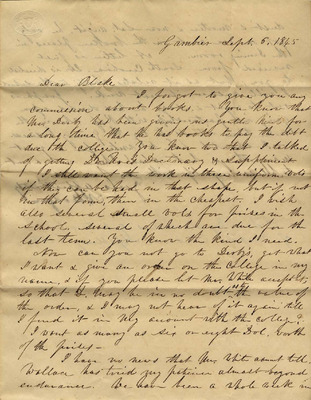 Gambier Sept. 5. 1845
Dear Blake
I forgot to give you any
commission about books. You know that
Mr Derby has been giving us gentle hints for
a long time that he has books to pay the debt
due the college. You know too that I talked
of getting Dictionary & Supplement
I still want the work in three uniform vols
if they can be had in that shape, but if not
in that form, then in the cheapest. I wish
also several small vols for prizes in the
School, several of which are due for the
last term. You know the kind I need.
Now can you not go to Derby's, get what
I want & give an order on the college in my
name, & if you please let Mr White accept it,
so that D. may be in no doubt the value of
the order, & I may not hear of it again till
I find it in my account with the college?
I want as many as six or eight Dol. worth
of the prizes—
I have no news that Mr White cannot tell.
Wallace has tired my patience almost beyond
endurance. We have been a whole week in